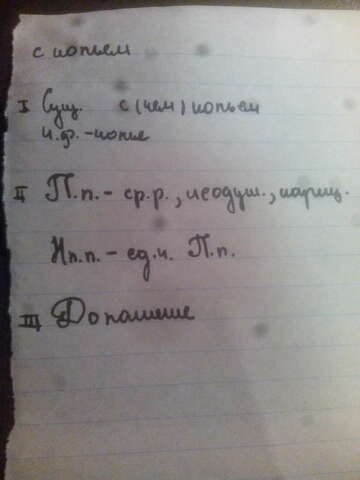 с копьем
I Сущ. с (чем) копьем
Н.ф. - копье
II П.п. - ср.р., неодуш., нариц.
Нп.п. - ед.ч. П.п.
III Допалнение